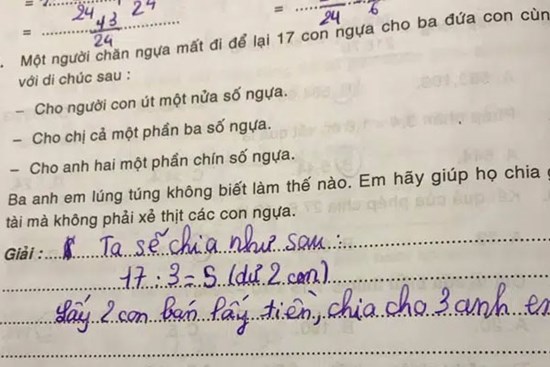 24 24
= 43 = 6
24 24
. Một người chăn ngựa mất đi để lại 17 con ngựa cho ba đứa con cùn
với di chúc sau :
– Cho người con út một nửa số ngựa.
– Cho chị cả một phần ba số ngựa.
– Cho anh hai một phần chín số ngựa.
Ba anh em lúng túng không biết làm thế nào. Em hãy giúp họ chia g
tài mà không phải xẻ thịt các con ngựa.
Giải : Ta sẽ chia như sau :
17 : 3 = 5 (dư 2 con)
Lấy 2 con bán lấy tiền, chia cho 3 anh em